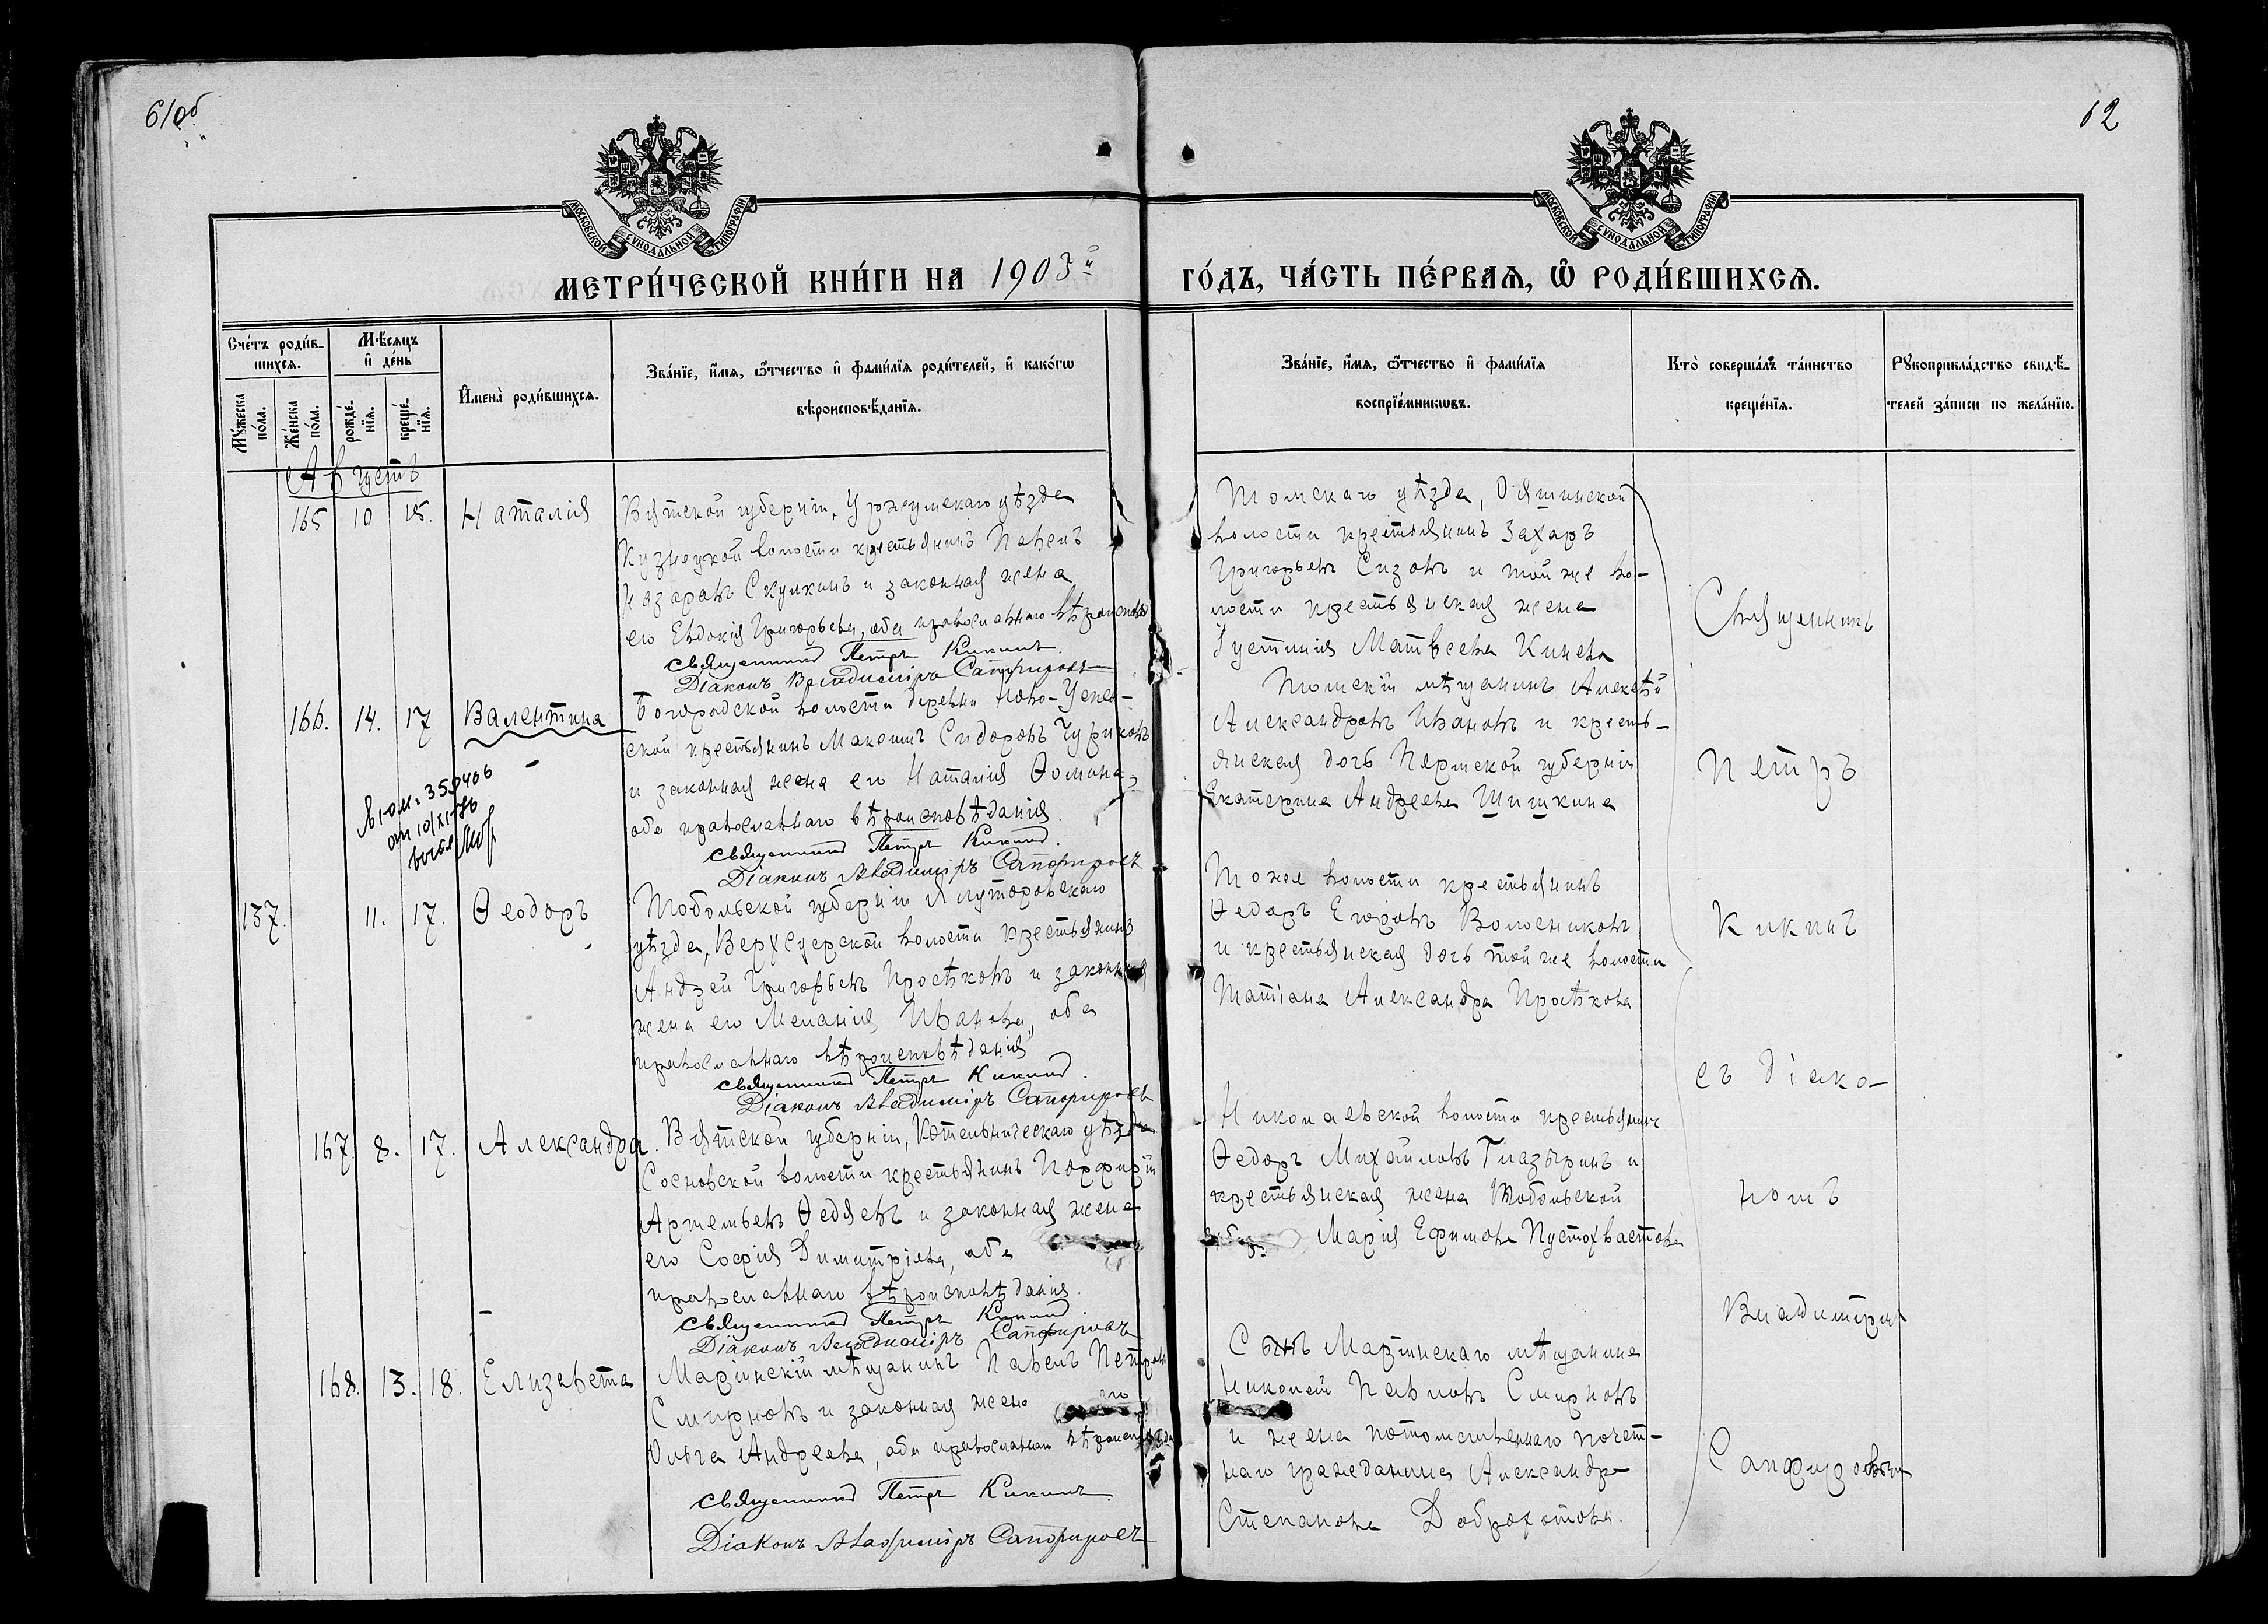 61об
62
МОСКОВСКОЙ СѴНОДАЛЬНОЙ ТИПОГРАФІИ
МОСКОВСКОЙ СѴНОДАЛЬНОЙ ТИПОГРАФІИ
МЕТРИ́ЧЕСКОЙ КНИ́ГИ НА 1903й
ГО́ДЪ, ЧА́СТЬ ПЕ́РВАѦ, Ѡ҆ РОДИ́ВШИХСѦ.
Сче́тъ роди́в-
шихсѧ.
Мѣ́сѧцъ
и҆ де́нь
Мꙋ́жеска
по́ла.
Же́нска
по́ла.
рожде́-
нїѧ.
креще́-
нїѧ.
И҆мена̀ роди́вшихсѧ.
Зва́нїе, и҆́мѧ, ѻ҆́тчество и҆ фами́лїѧ роди́телей, и҆ како́гѡ
вѣроисповѣ́данїѧ.
Зва́нїе, и҆́мѧ, ѻ҆́тчество и҆ фами́лїѧ
воспрїе́мникѡвъ.
Кто̀ соверша́лъ та́инство
креще́нїѧ.
Рꙋкоприкла́дство свидѣ́-
телей за́писи по жела́нїю.
Августъ
165 10 15. Наталія
Вятской губерніи, Уржумскаго уѣзда
Кузнецкой волости крестьянинъ Павелъ
Назаровъ Скулкинъ и законная жена
его Евдокія Григорьева, оба православнаго вѣроисповѣ
Священникъ Петръ Кикинъ.
Діаконъ Владиміръ Сапфировъ
Томскаго уѣзда, Ояшинской
волости крестьянинъ Захаръ
Григорьевъ Сизовъ и той же во-
лости крестьянская жена
Іустинія Матвеева Кинева
166. 14. 17 Валентина
Богородской волости деревни Ново-Успен-
ской крестьянинъ Максимъ Сидоровъ Чуриковъ
и законная жена его Наталія Ѳомина,
оба православнаго вѣроисповѣданія.
Священникъ Петръ Кикинъ.
Діаконъ Владиміръ Сапфировъ
Томскій мѣщанинъ Алексѣй
Александровъ Ивановъ и кресть-
янская дочь Пермской губерніи
Екатерина Андреева Шишкина
359406
от 10/XI
137. 11. 17. Ѳеодоръ
Тобольской губерніи Ялуторовскаго
уѣзда, Верхсуерской волости крестьянинъ
Андрей Григорьевъ Просѣковъ и законная
жена его Меланія Иванова, оба
православнаго вѣроисповѣданія
Священникъ Петръ Кикинъ.
Діаконъ Владиміръ Сапфировъ
Тоже волости крестьянинъ
Ѳедоръ Егоровъ Волосниковъ
и крестьянская дочь той же волости
Татіана Александра Просѣкова
167. 8. 17. Александра.
Вятской губерніи, Котельническаго уѣзда
Сосновской волости крестьянинъ Порфирій
Артемьевъ Ѳедяевъ и законная жена
его Софія Димитріева, оба
православнаго вѣроисповѣданія.
Священникъ Петръ Кикинъ
Діаконъ Владиміръ Сапфировъ
Николаевской волости крестьянинъ
Ѳедоръ Михайловъ Глазыринъ и
крестьянская жена Тобольской
губ. Марія Ефимова Пустохвастова
168. 13. 18. Елизавета
Маріинскій мѣщанинъ Павелъ Петровъ
Смирновъ и законная жена его
Ольга Андреева, оба православнаго вѣроисповѣдан
Священникъ Петръ Кикинъ.
Діаконъ Владиміръ Сапфировъ
Сынъ Маріинскаго мѣщанина
Николай Павловъ Смирновъ
и жена потомственнаго почет-
наго гражданина Александра
Степанова Доброхотова.
Священникъ
Петръ
Кикинъ
съ діако-
номъ
Владиміромъ
Сапфировымъ